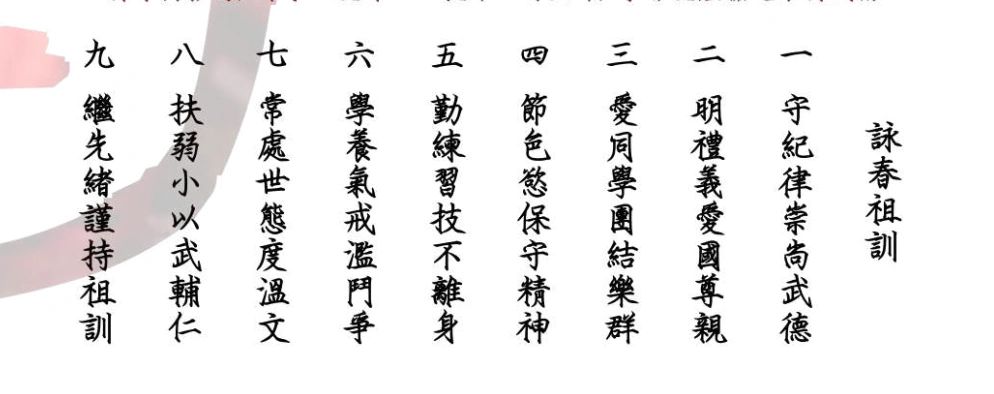 詠春祖訓
一 守紀律崇尚武德
二 明禮義愛國尊親
三 愛同學團結樂群
四 節色慾保守精神
五 勤練習技不離身
六 學養氣戒濫鬥爭
七 常處世態度溫文
八 扶弱小以武輔仁
九 繼先緒謹持祖訓